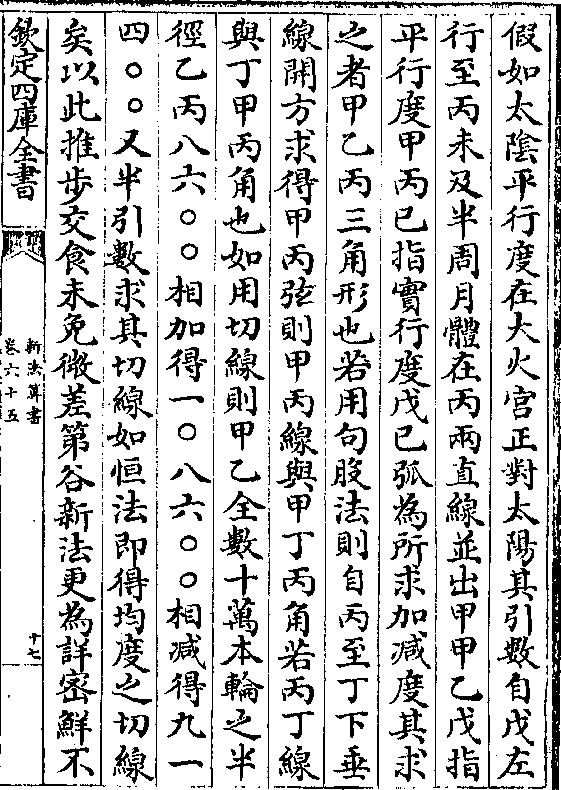 假如太陰平行度在大火宮正對太陽其引數自戊左
行至丙未及半周月體在丙兩直線並出甲甲乙戊指
平行度甲丙已指實行度戊已弧為所求加減度其求
之者甲乙丙三角形也若用句股法則自丙至丁下垂
線開方求得甲丙弦則甲丙線與甲丁丙角若丙丁線
與丁甲丙角也如用切線則甲乙全數十萬本輪之半
徑乙丙八六○○相加得一○八六○○相減得九一
四○○又半引數求其切線如恒法即得均度之切線
矣以此推步交食未免微差第谷新法更為詳密鮮不
欽定四庫全書
新法算書
卷六十五
十七